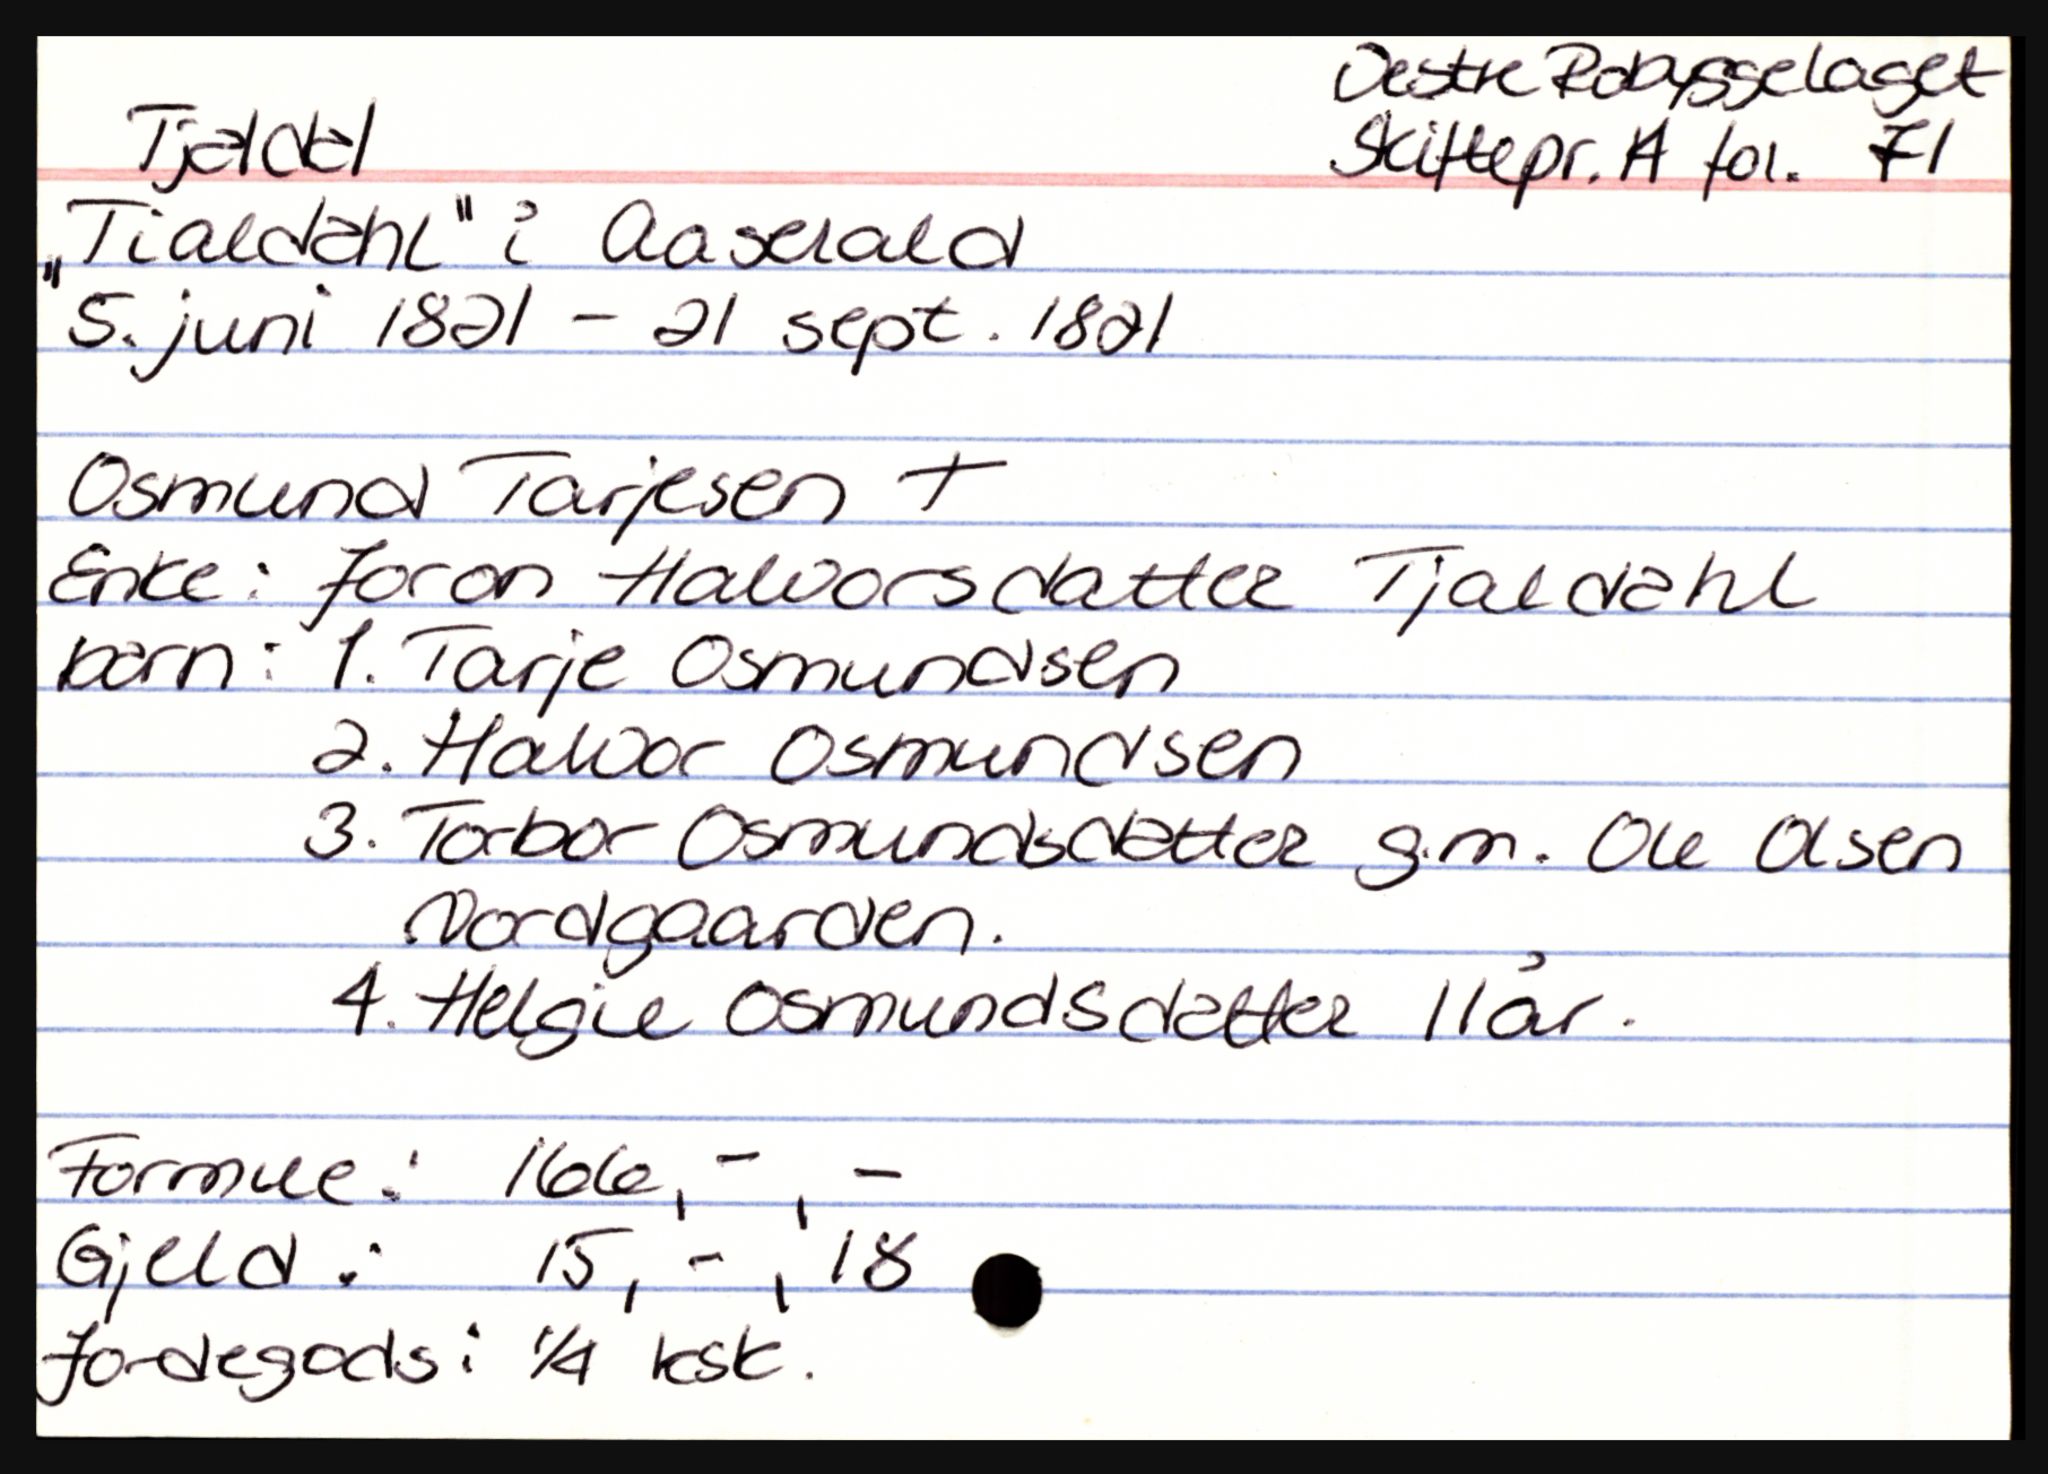 Vestre Robyggelaget
Tjaldal
Skiftepr. A fol. 71
„Tialdahl" i Aaserald
"5. juni 1821 - 21 sept. 1821
Osmund Tarjesen +
Enke: Joron Halvorsdatter Tjaldahl
barn: 1. Tarje Osmundsen
2. Halvor Osmundsen
3. Torbor Osmundsdatter g.m. Ole Olsen
Nordgaarden.
4. Helgie Osmundsdatter 11 år.
Formue: 166, -, -
Gjeld: 15, -, 18
Jordegods: 1/4 ksk.